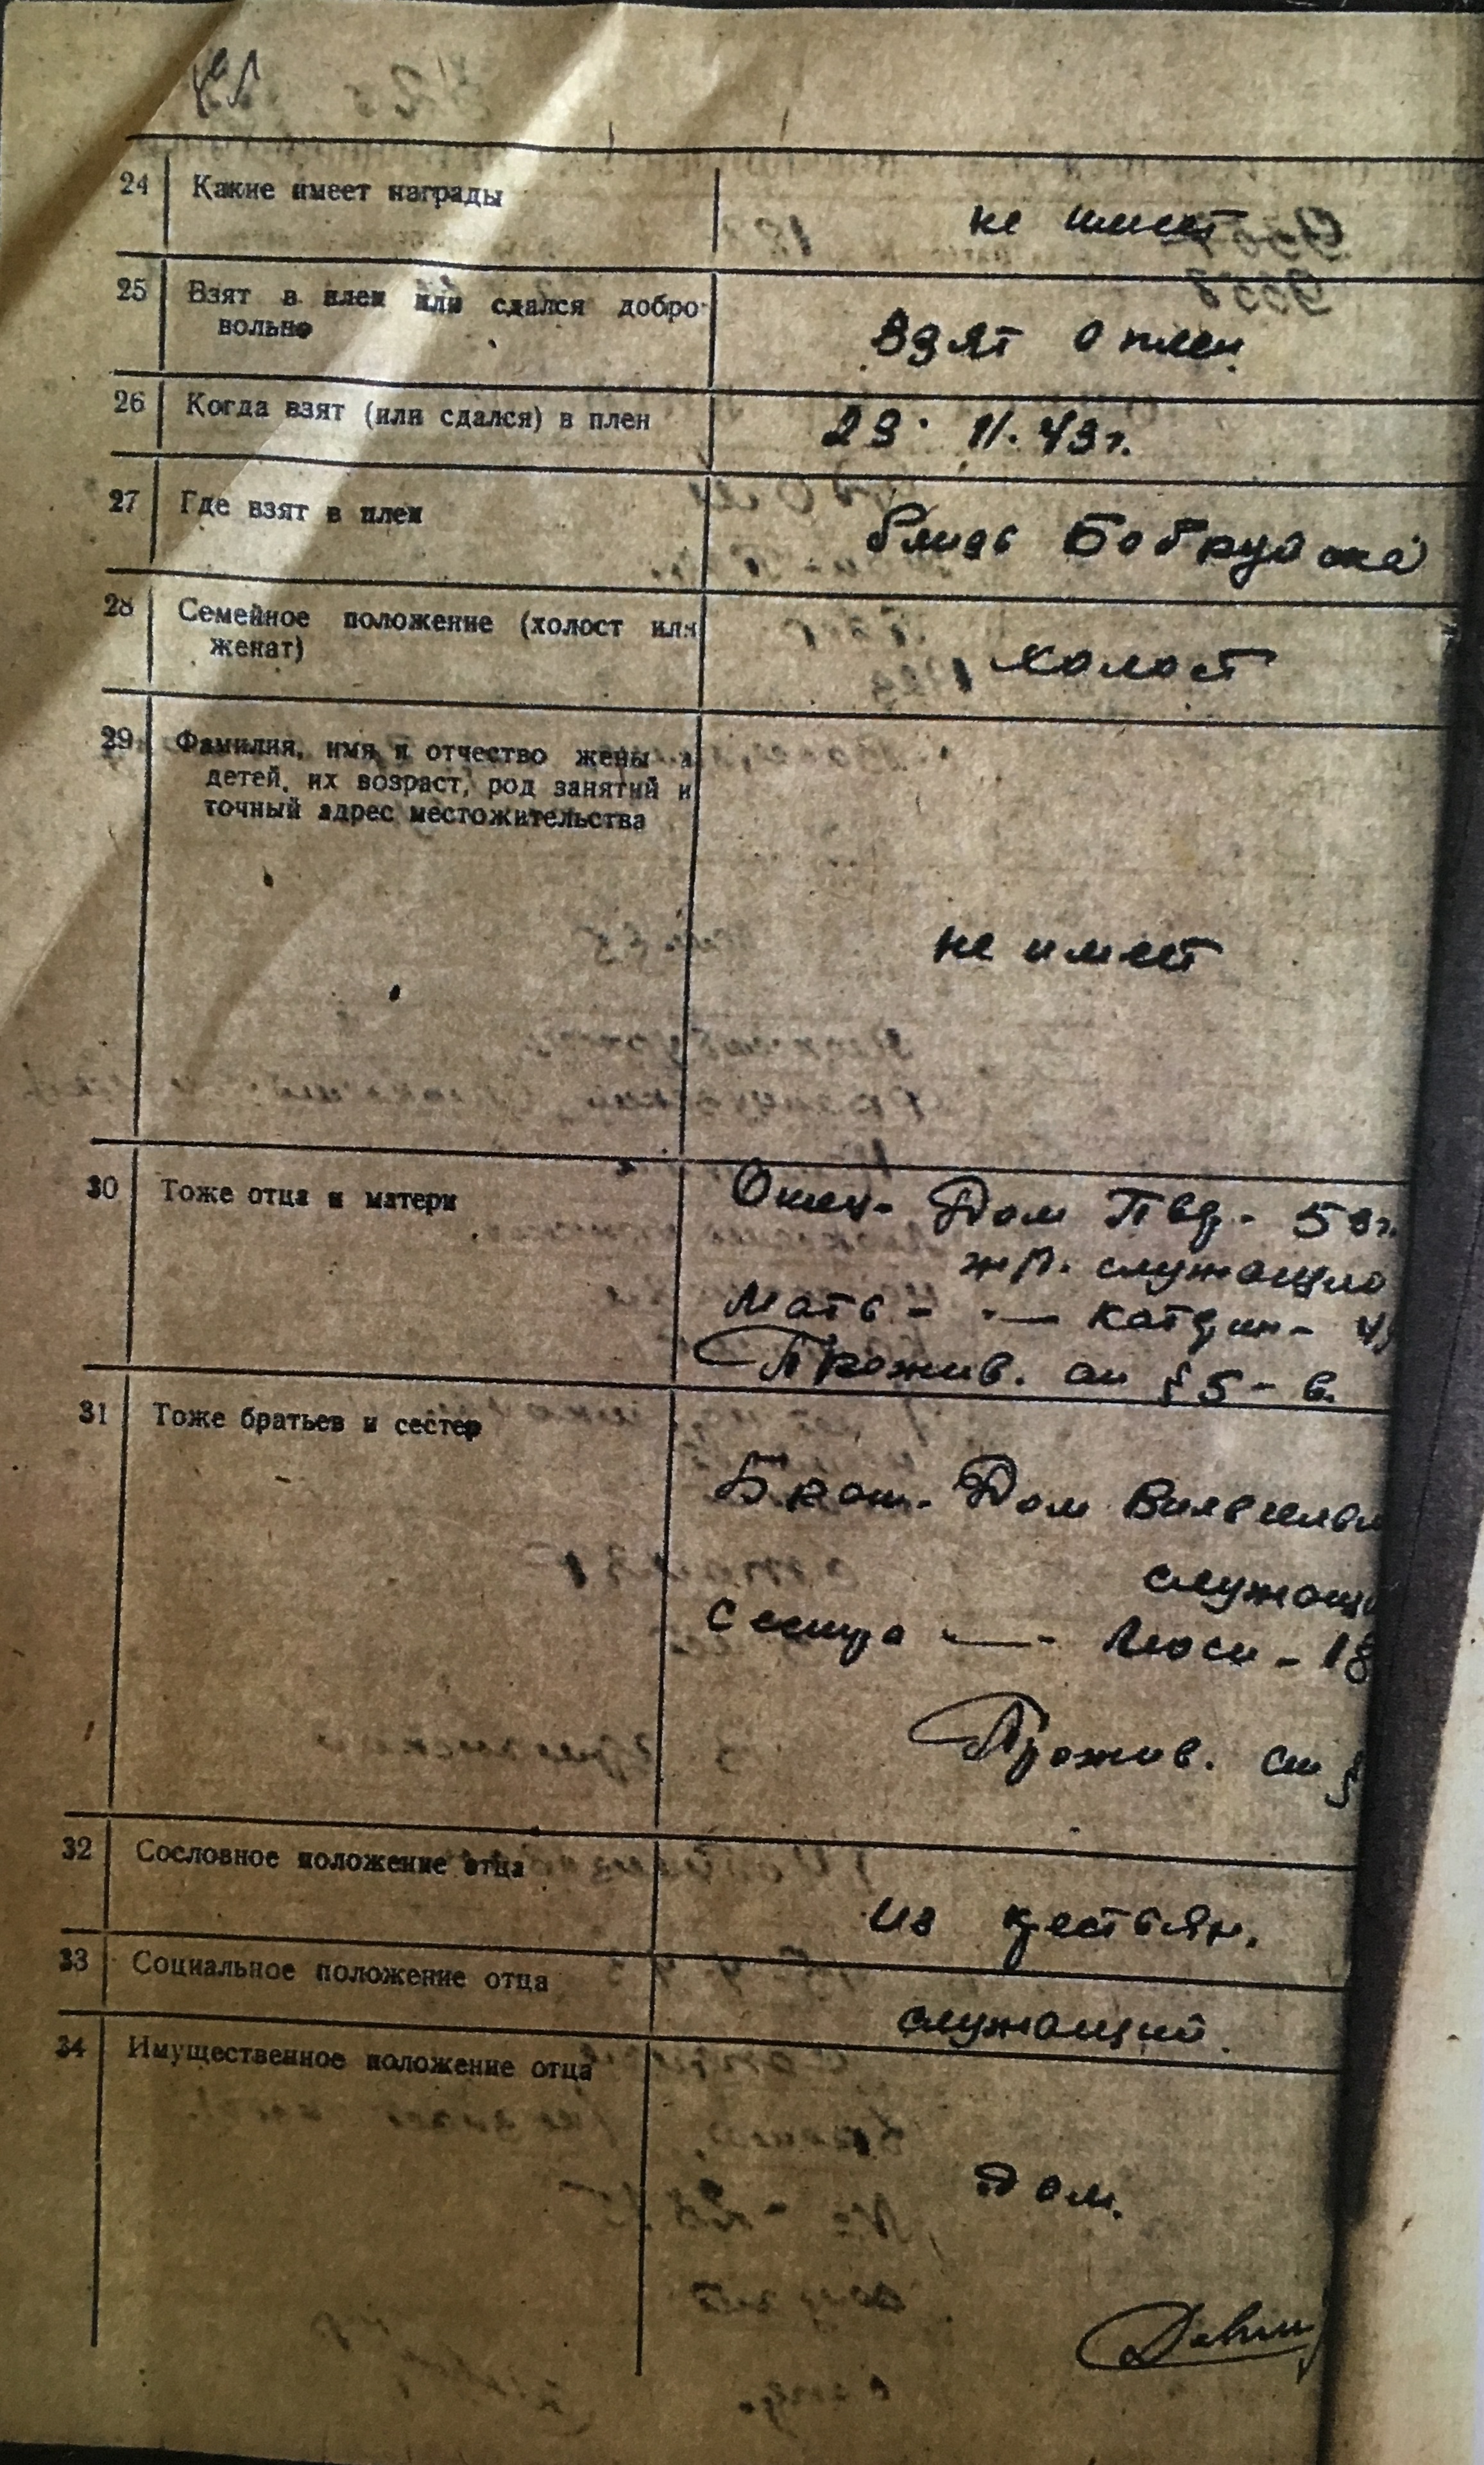 24 Какие имеет награды
не имеет
25 Взят в плен или сдался добро-
вольно
Взят в плен.
26 Когда взят (или сдался) в плен
29. 11. 43 г.
27 Где взят в плен
близь Бобруйска
28 Семейное положение (холост или
женат)
холост
29 Фамилия, имя и отчество жены и
детей, их возраст, род занятий и
точный адрес местожительства
не имеет
30 Тоже отца и матери
Отец- Дом
служащий
Мать -
Прожив. см § 5 - в.
31 Тоже братьев и сестер
Брат. Дом
служащи
Сестра - Люси - 18
Прожив. см §
32 Сословное положение отца
из крестьян.
33 Социальное положение отца
служащий.
34 Имущественное положение отца
дом.